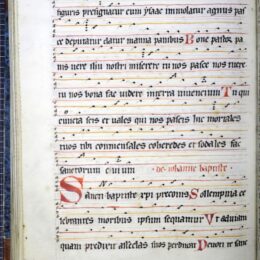 figuris presignatur cum ysaac immolatur agnus pas
ce deputatur datur manna patribus Bone pastor pa
nis vere ihu nostri miserere tu nos pasce nos tuere
tu nos bona fac videre in terra viuencium Tu qui
cuncta scis et vales qui nos pascis hic mortales
tuos ibi commensales coheredes et sodales fac
sanctorum ciuium de iohanne baptista
Sancti baptiste xpi preconis Sollempnia ce
lebrantes moribus ipsum sequamur Vt ad viam
quam predixit asseclas suos perducat Deuoti te sanc